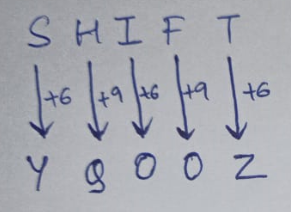 S H I F T
+6 +9 +6 +9 +6
Y Q O O Z